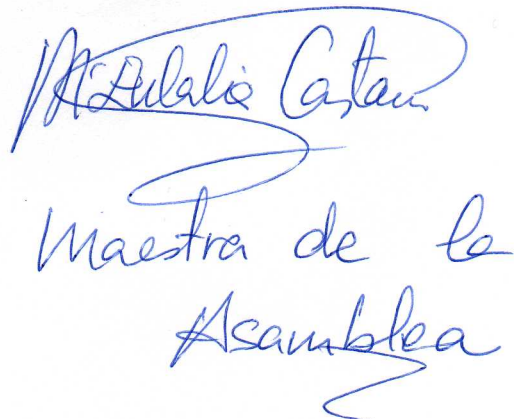 Mª Eulalia Castaño
Maestra de la
Asamblea